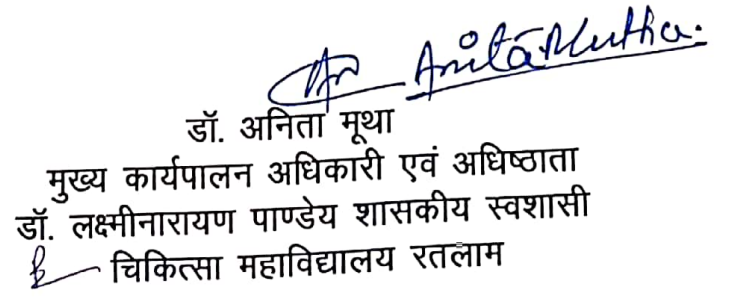 Dr Anita Mutha.
डॉ. अनिता मूथा
मुख्य कार्यपालन अधिकारी एवं अधिष्ठाता
डॉ. लक्ष्मीनारायण पाण्डेय शासकीय स्वशासी
चिकित्सा महाविद्यालय रतलाम